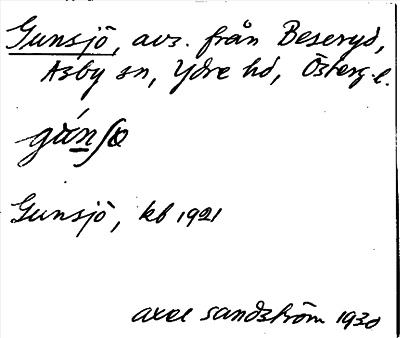 Gunsjö, avs. från Beseryd,
Asby sn, Ydre hd, Österg. l.
Gunsjö, kb 1921
axel sandström 1930